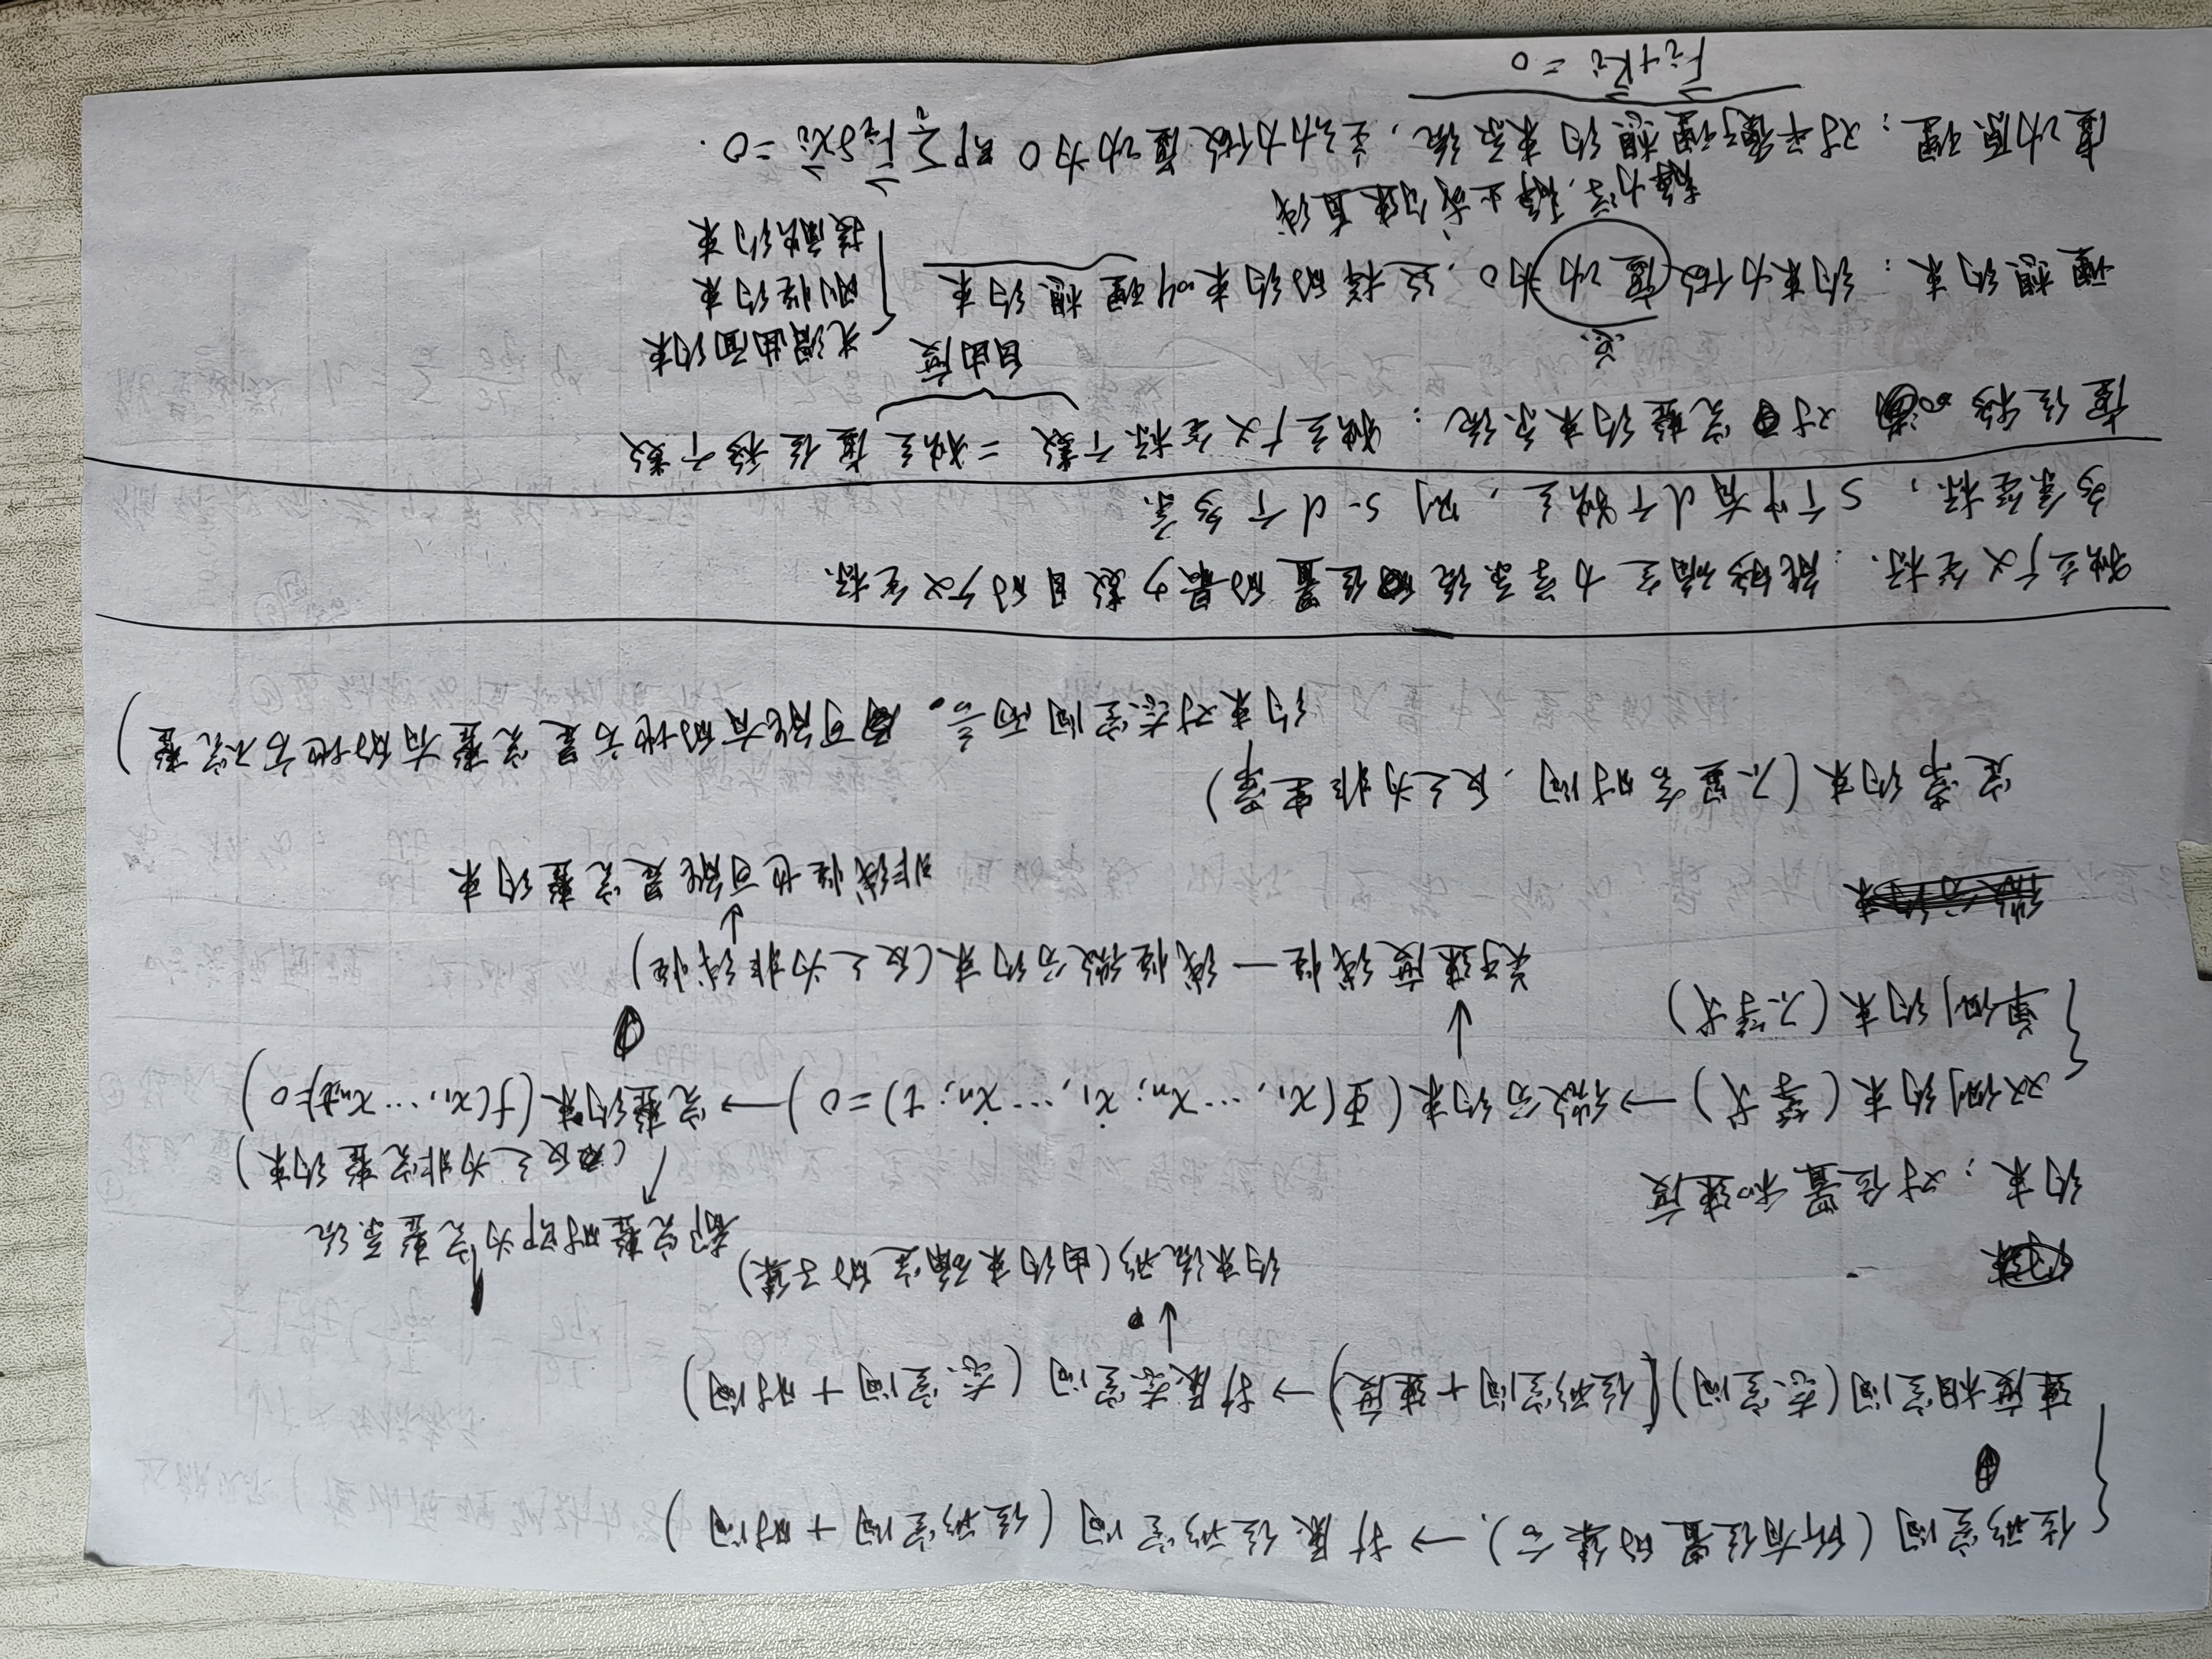 位形空间(所有位置的集合). → 扩展位形空间(位形空间+时间)
速度相空间(态空间)[位形空间+速度) → 扩展态空间(态空间+时间)
↓
约束流形(由约束确定的子集)
约束:对位置和速度
都完整时即为完整系统
(反之为非完整约束)
双侧约束(等式) → 微分约束(Φ(x₁,…xₙ; ẋ₁,…ẋₙ; t)=0) → 完整约束(f(x₁,…xₙ,t)=0)
单侧约束(不等式)
↓
关于速度线性—线性微分约束(反之为非线性)
↓
非线性也可能是完整约束
定常约束(不显含时间,反之为非定常)
约束对态空间而言。可能有的地方是完整有的地方不完整)
独立广义坐标:能够确定力学系统位置的最少数目的广义坐标.
多余坐标, S个中有d个独立,则S-d个多余.
虚位移 对完整约束系统:独立广义坐标个数=独立虚位移个数
自由度
理想约束:约束力做虚功为0,这样的约束叫理想约束
光滑曲面约束
刚性约束
接触约束
静力学,静止或匀速直线
虚功原理:对平衡理想约束系统,主动力做虚功为0 即∑ᵢF⃗ᵢδx⃗ᵢ=0.
F⃗ᵢ+R⃗ᵢ=0